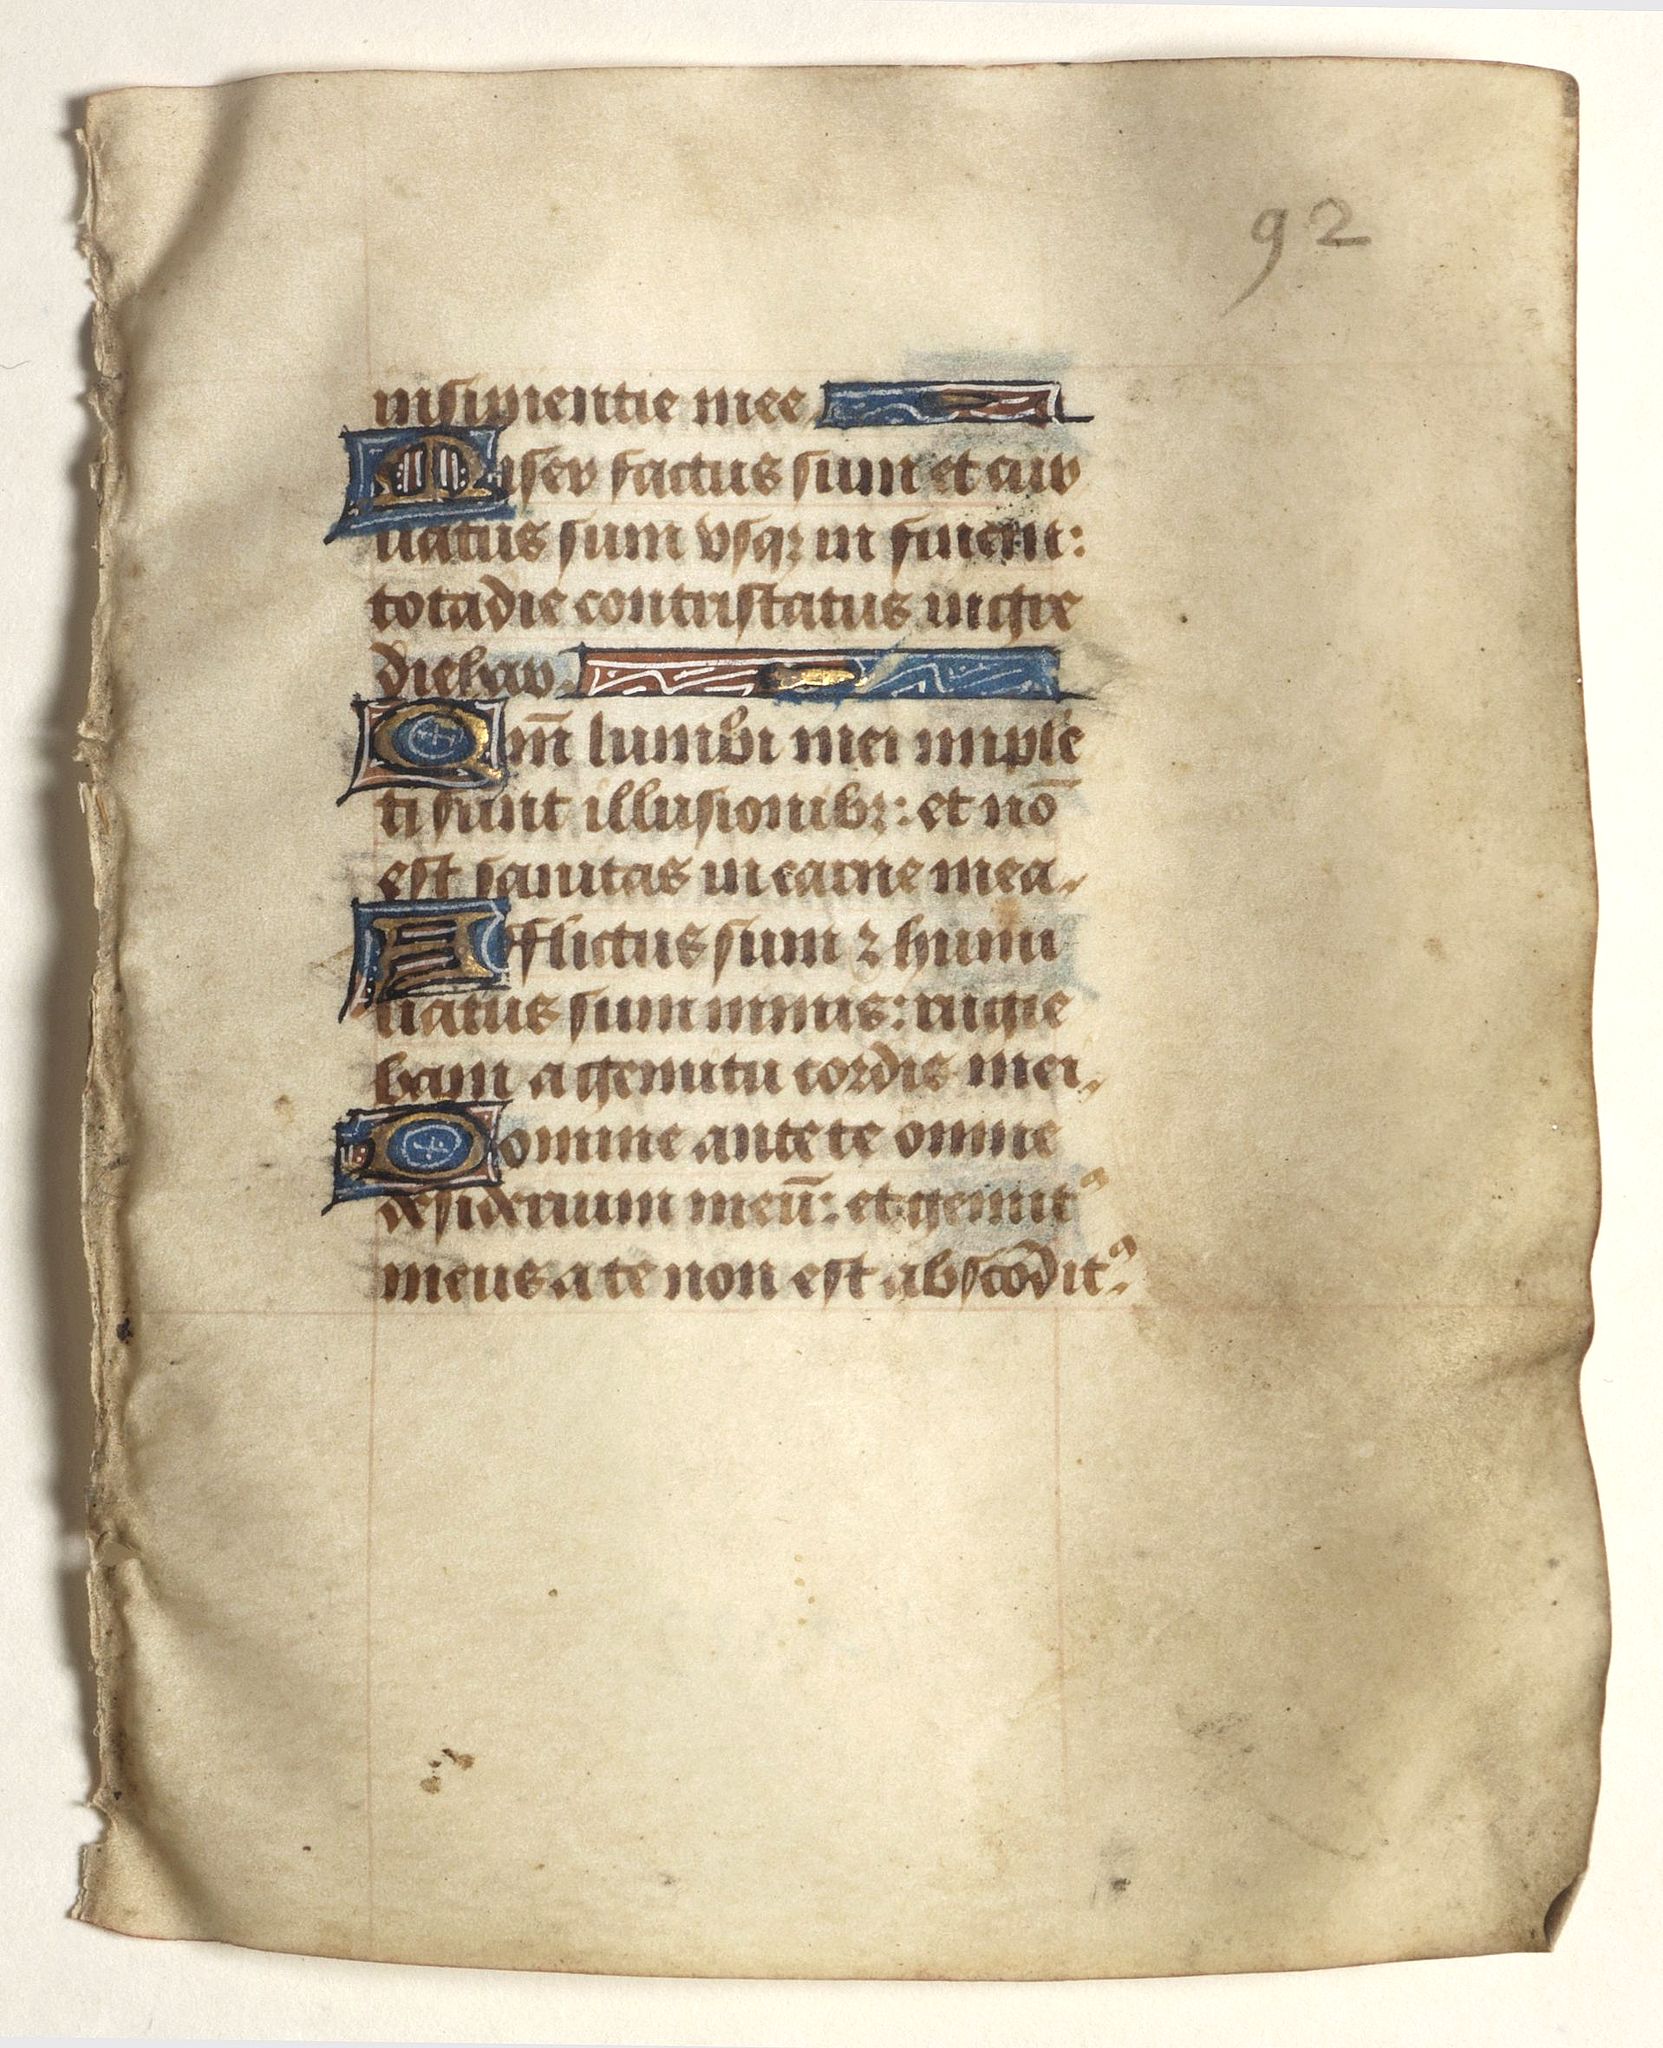 92
insipientie mee
Miser factus sum et cur
uatus sum vsqꝫ in finem:
tota die contristatus ingre
diebar.
Qm̅ lumbi mei imple
ti sunt illusionibꝫ: et nō
est sanitas in carne mea.
Afflictus sum ⁊ humi
liatus sum nimis: rugie
bam a gemitu cordis mei.
Domine ante te omne
desiderium meū: et gemitꝰ
meus a te non est abscōditꝰ.